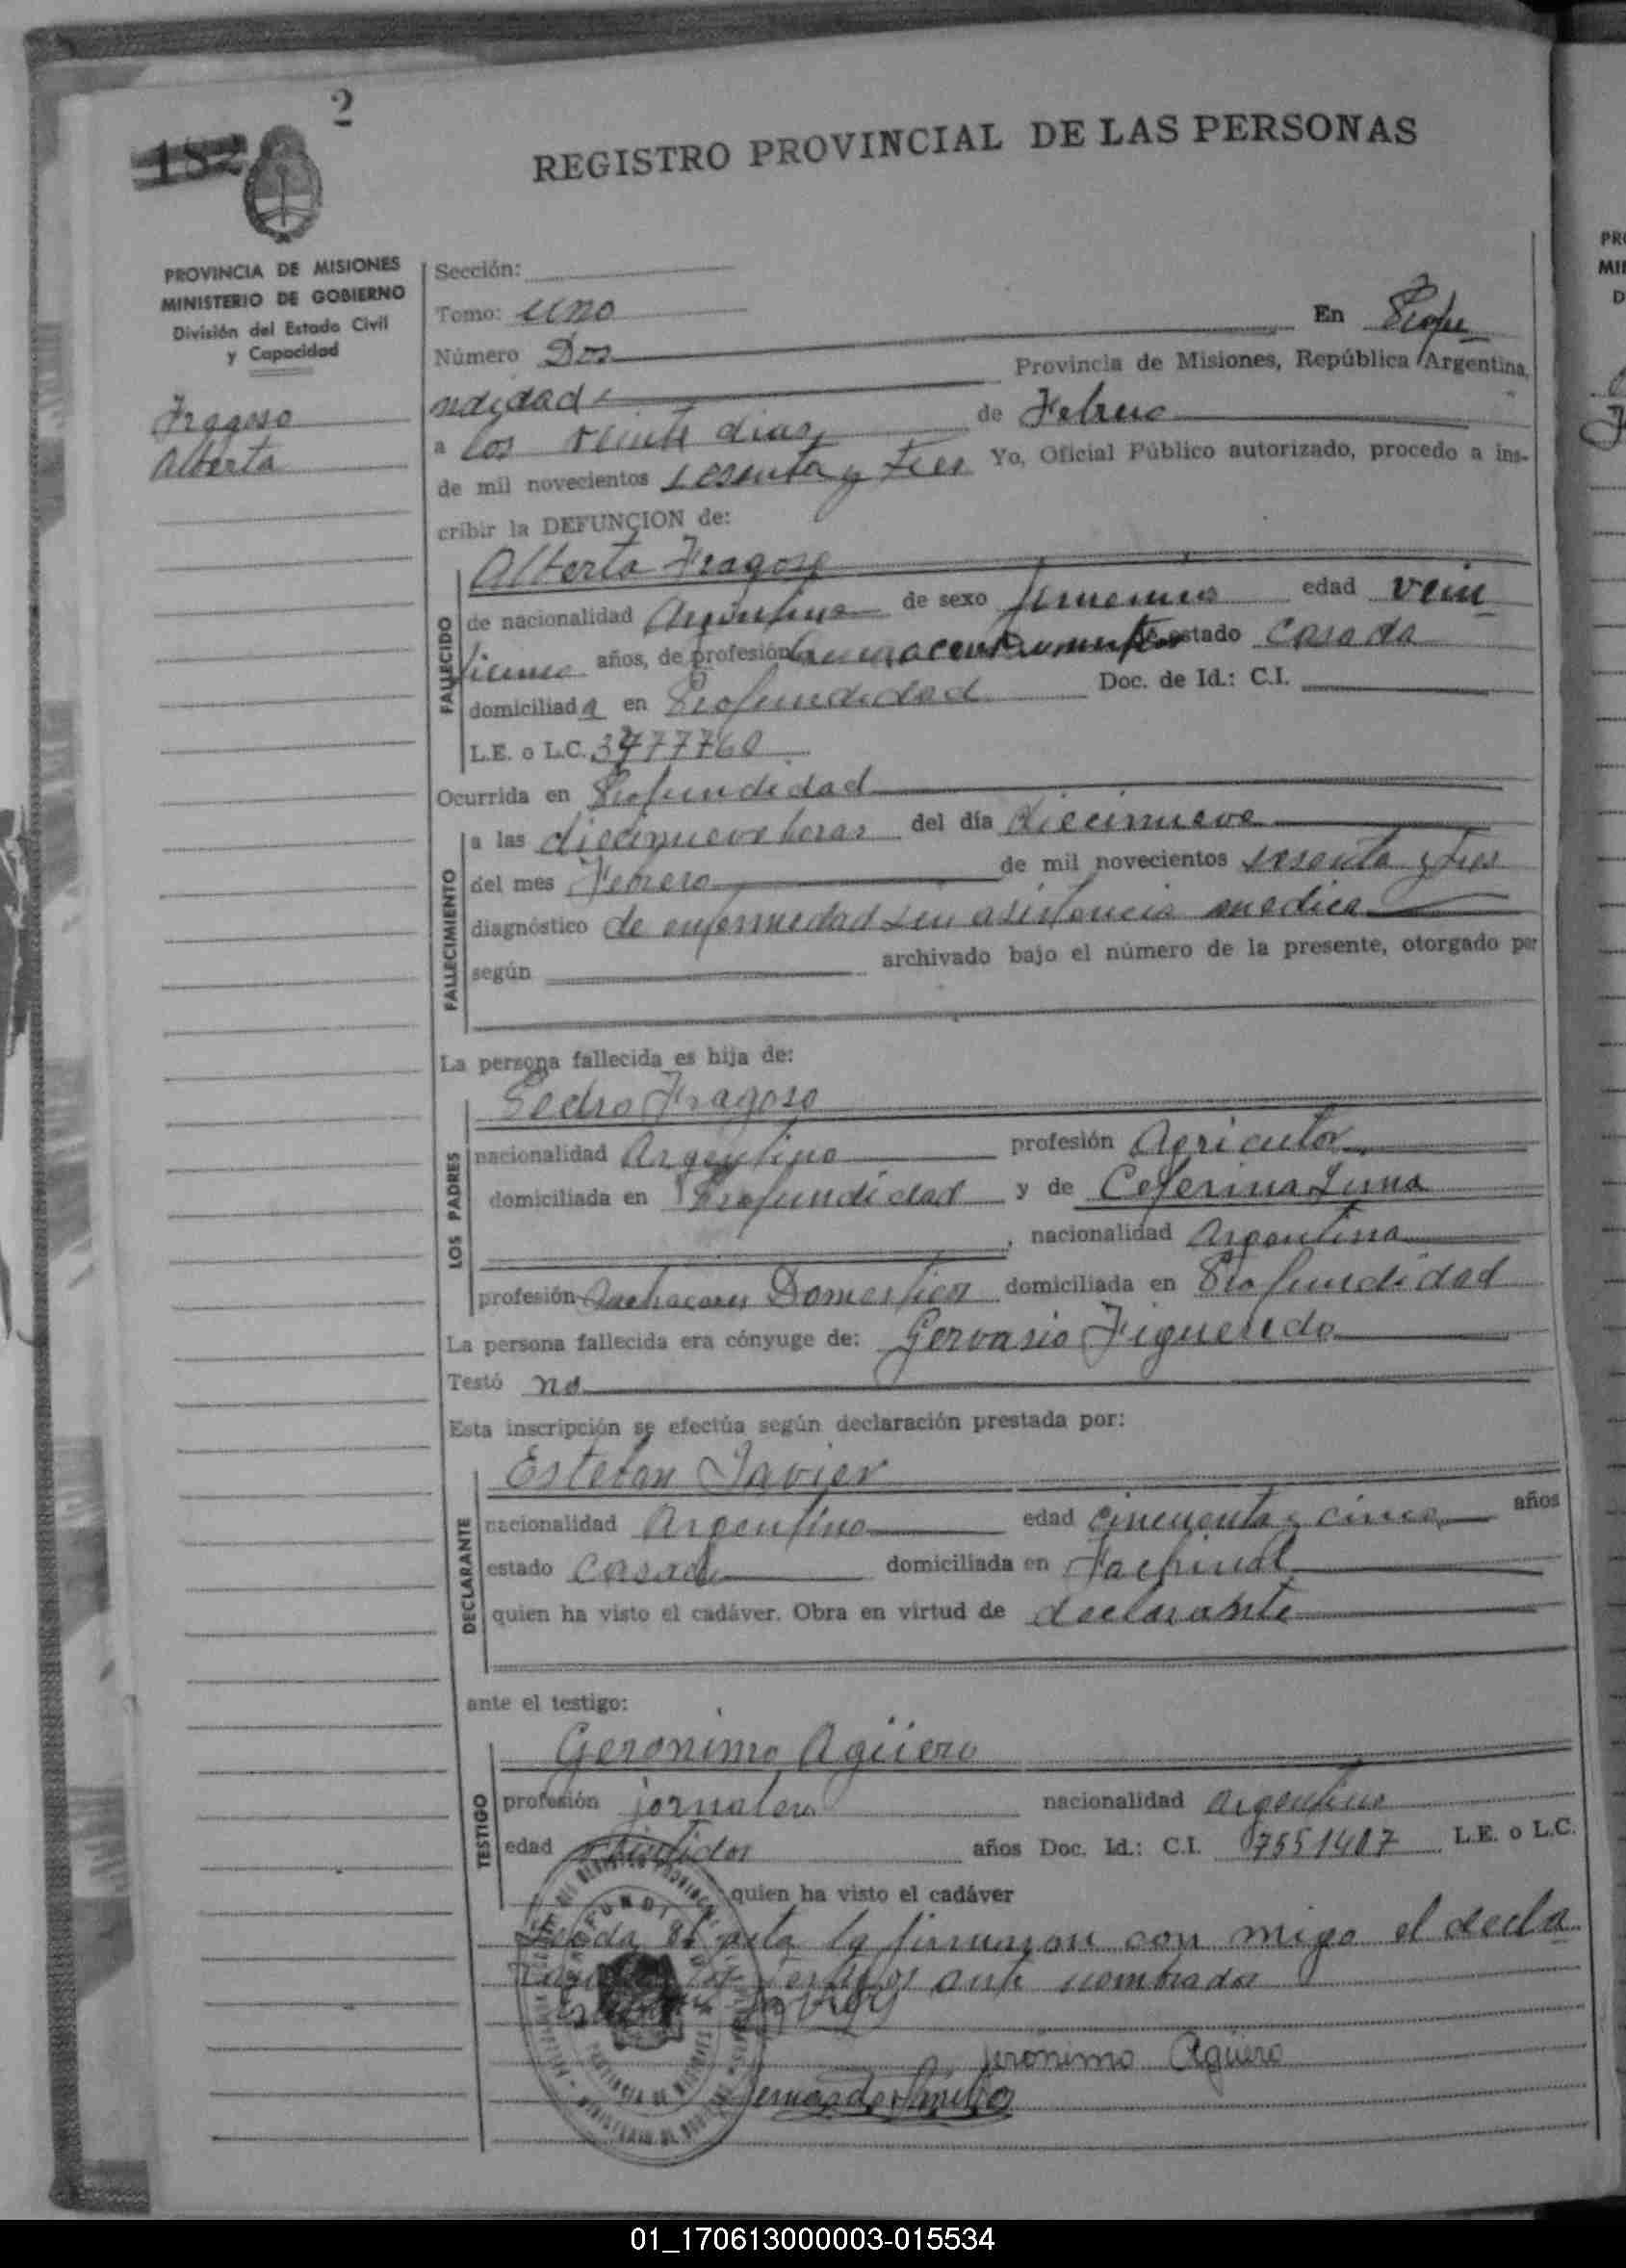 2
182
REGISTRO PROVINCIAL DE LAS PERSONAS
PROVINCIA DE MISIONES
MINISTERIO DE GOBIERNO
División del Estado Civil
y Capacidad
Fragoso
Alberta
Sección:
Tomo: uno
Número Dos En Profu
ndidad Provincia de Misiones, República Argentina,
a los veinte dias de Febrero
de mil novecientos sesenta y tres Yo, Oficial Público autorizado, procedo a ins-
cribir la DEFUNCION de:
Alberta Fragoso
FALLECIDO
de nacionalidad Argentina de sexo femenino edad vein
años, de profesión de estado Casada
domiciliada en Profundidad Doc. de Id.: C.I.
L.E. o L.C. 3477760
Ocurrida en Profundidad
FALLECIMIENTO
a las diecinueve horas del día diecinueve
del mes Febrero de mil novecientos sesenta y tres
diagnóstico de enfermedad sin asistencia medica
según archivado bajo el número de la presente, otorgado por
La persona fallecida es hija de:
Pedro Fragoso
LOS PADRES
nacionalidad Argentino profesión Agricultor
domiciliada en Profundidad y de Ceferina Luna
, nacionalidad Argentina
profesión Quehaceres Domestico domiciliada en Profundidad
La persona fallecida era cónyuge de: Gervasio Figueredo
Testó no
Esta inscripción se efectúa según declaración prestada por:
Esteban Javier
DECLARANTE
nacionalidad Argentino edad cincuenta y cinco años
estado Casado domiciliada en Fachinal
quien ha visto el cadáver. Obra en virtud de declarante
ante el testigo:
Geronimo Agüero
TESTIGO
profesión jornalero nacionalidad argentino
edad años Doc. Id.: C.I. 7551407 L.E. o L.C.
quien ha visto el cadáver
Leida el acta la firmaron con migo el decla
testigos ante nombrados
Jeronimo Agüero
PR
MI
D
01_170613000003-015534